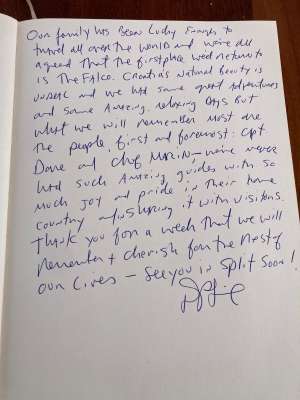 Our family has Been Lucky Enough to
travel all over the world and we've all
agreed that the first place we'd return to
is The Falco. Croatia's Natural Beauty is
unreal and we had some great Adventures
and some Amazing, relaxing Days But
what we will remember most are
the people, first and foremost: Cpt
Dave and Chef Marin — we've never
had such Amazing guides with so
much joy and pride in their home
country and sharing it with visitors.
Thank you for a week that we will
Remember + cherish for the Rest of
our Lives — See you in Split Soon!